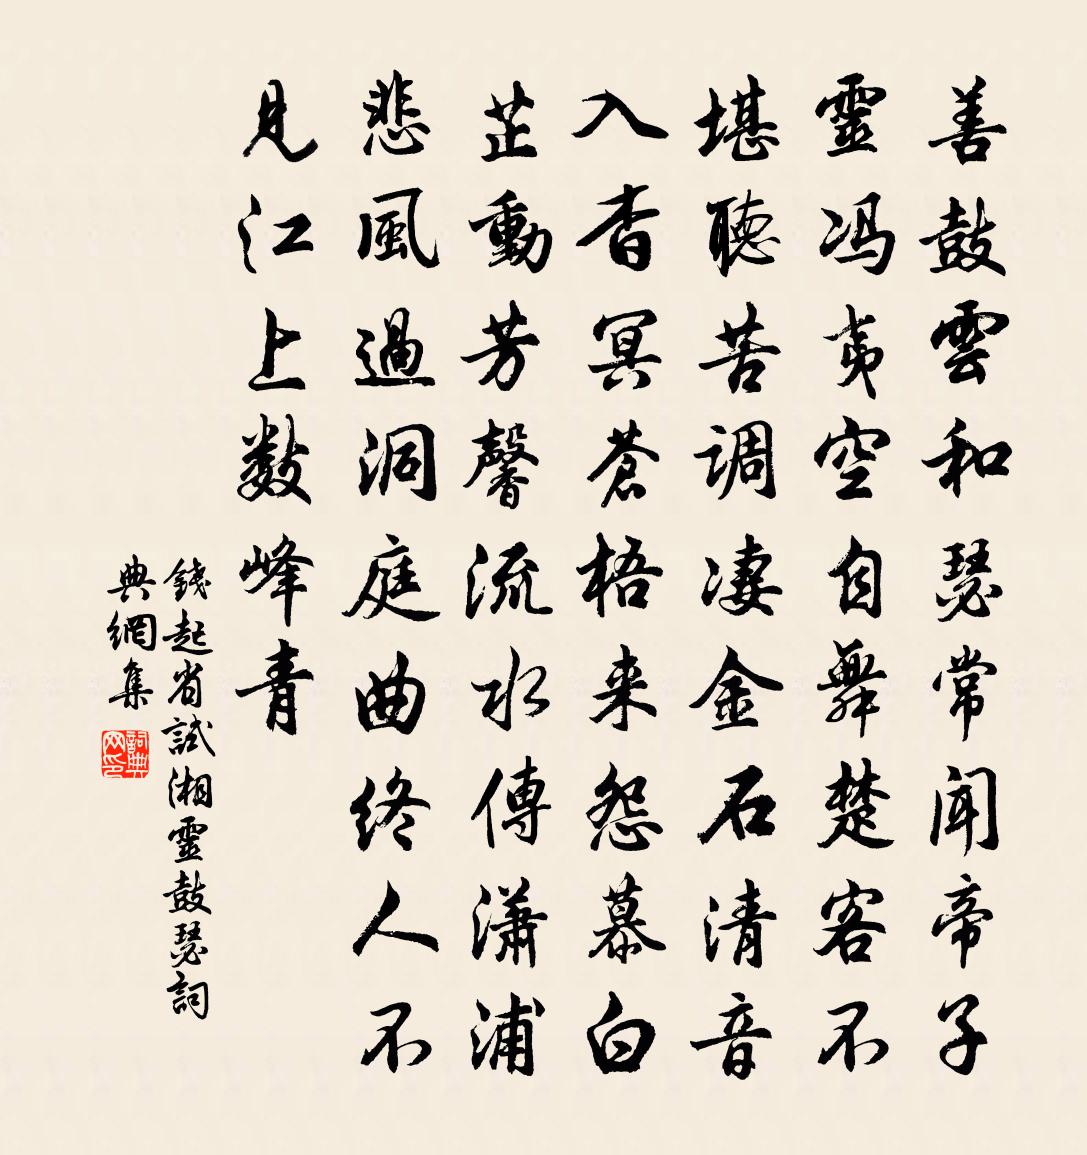 善鼓雲和瑟常聞帝子
靈冯夷空自舞楚客不
堪聽苦调凄金石清音
入杳冥蒼梧来怨慕白
芷動芳馨流水傳瀟浦
悲風過洞庭曲终人不
見江上數峰青
錢起省試湘靈鼓瑟詞
典網集
詞典
网印